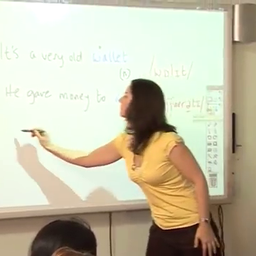 It's a very old wallet
(n) /wɒlɪt/
He gave money to